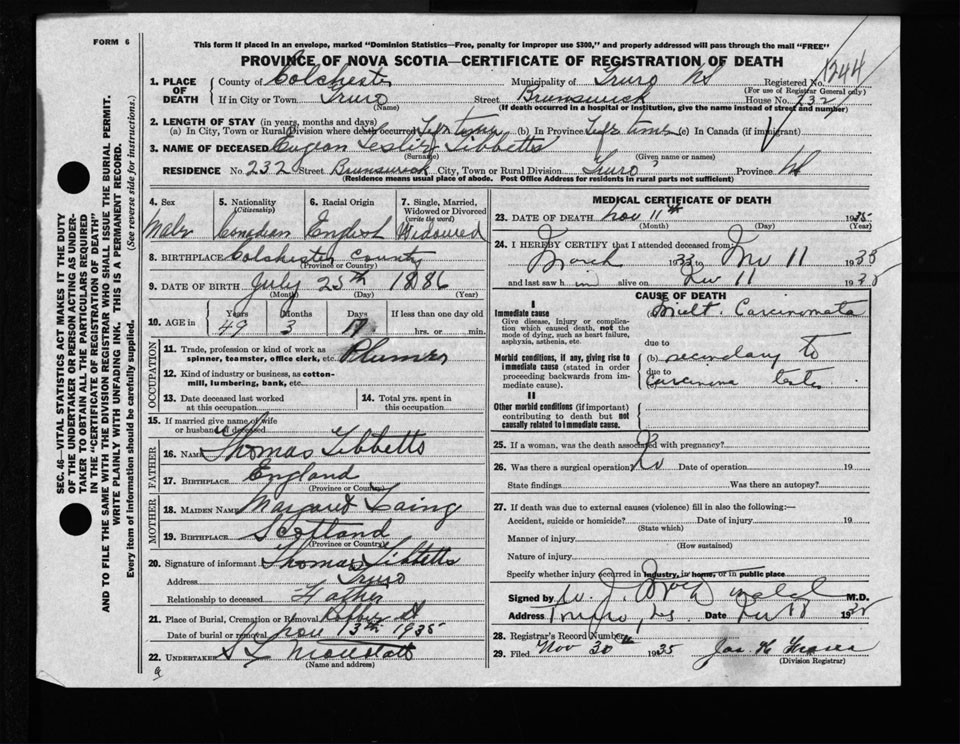 FORM 6
This form if placed in an envelope, marked "Dominion Statistics—Free, penalty for improper use $300," and properly addressed will pass through the mail "FREE"
PROVINCE OF NOVA SCOTIA—CERTIFICATE OF REGISTRATION OF DEATH
1244
SEC. 46—VITAL STATISTICS ACT MAKES IT THE DUTY
OF THE UNDERTAKER OR PERSON ACTING AS UNDER-
TAKER TO OBTAIN ALL THE PARTICULARS REQUIRED
IN THE "CERTIFICATE OF REGISTRATION OF DEATH"
AND TO FILE THE SAME WITH THE DIVISION REGISTRAR WHO SHALL ISSUE THE BURIAL PERMIT.
WRITE PLAINLY WITH UNFADING INK. THIS IS A PERMANENT RECORD.
Every item of Information should be carefully supplied. (See reverse side for instructions.)
1. PLACE OF DEATH County of Colchester Municipality of Truro NS Registered No.
(For use of Registrar General only)
If in City or Town Truro Street Brunswick House No. 232
(Name) (If death occurred in a hospital or institution, give the name instead of street and number)
2. LENGTH OF STAY (in years, months and days)
(a) In City, Town or Rural Division where death occurred Life time (b) In Province Life time (c) In Canada (if immigrant)
3. NAME OF DECEASED Eugean Leslie Tibbetts
(Surname) (Given name or names)
RESIDENCE No. 232 Street Brunswick City, Town or Rural Division Truro Province NS
(Residence means usual place of abode. Post Office Address for residents in rural parts not sufficient)
4. Sex 5. Nationality (Citizenship) 6. Racial Origin 7. Single, Married, Widowed or Divorced (write the word)
Male Canadian English Widowed
8. BIRTHPLACE Colchester County
(Province or Country)
9. DATE OF BIRTH July 25th 1886
(Month) (Day) (Year)
10. AGE in Years Months Days If less than one day old
49 3 17 hrs. or min.
OCCUPATION
11. Trade, profession or kind of work as
spinner, teamster, office clerk, etc. Plumer
12. Kind of industry or business, as cotton-
mill, lumbering, bank, etc.
13. Date deceased last worked
at this occupation
14. Total yrs. spent in
this occupation
15. If married give name of wife
or husband of deceased
FATHER
16. NAME Thomas Tibbetts
17. BIRTHPLACE England
(Province or Country)
MOTHER
18. MAIDEN NAME Margaret Laing
19. BIRTHPLACE Scotland
(Province or Country)
20. Signature of informant Thomas Tibbetts
Address Truro
Relationship to deceased Father
21. Place of Burial, Cremation or Removal
Date of burial or removal Nov 13th 1935
22. UNDERTAKER
(Name and address)
MEDICAL CERTIFICATE OF DEATH
23. DATE OF DEATH Nov 11th 1935
(Month) (Day) (Year)
24. I HEREBY CERTIFY that I attended deceased from:
March 1933 to Nov 11 1935
and last saw h im alive on Nov 11 1935
CAUSE OF DEATH
I
Immediate cause
Give disease, injury or complica-
tion which caused death, not the
mode of dying, such as heart failure,
asphyxia, asthenia, etc.
(a) Mult. Carcinomata
due to
Morbid conditions, if any, giving rise to
immediate cause (stated in order
proceeding backwards from im-
mediate cause).
(b) secondary to
due to
Carcinoma testes
II
Other morbid conditions (if important)
contributing to death but not
causally related to immediate cause.
25. If a woman, was the death associated with pregnancy?
26. Was there a surgical operation? No Date of operation 19
State findings Was there an autopsy?
27. If death was due to external causes (violence) fill in also the following:—
Accident, suicide or homicide? Date of injury 19
(State which)
Manner of injury
(How sustained)
Nature of injury
Specify whether injury occurred in industry, in home, or in public place
Signed by M.D.
Address Truro, NS Date 1935
28. Registrar's Record Number
29. Filed Nov 30th 1935 Jas. H Fraser
(Division Registrar)